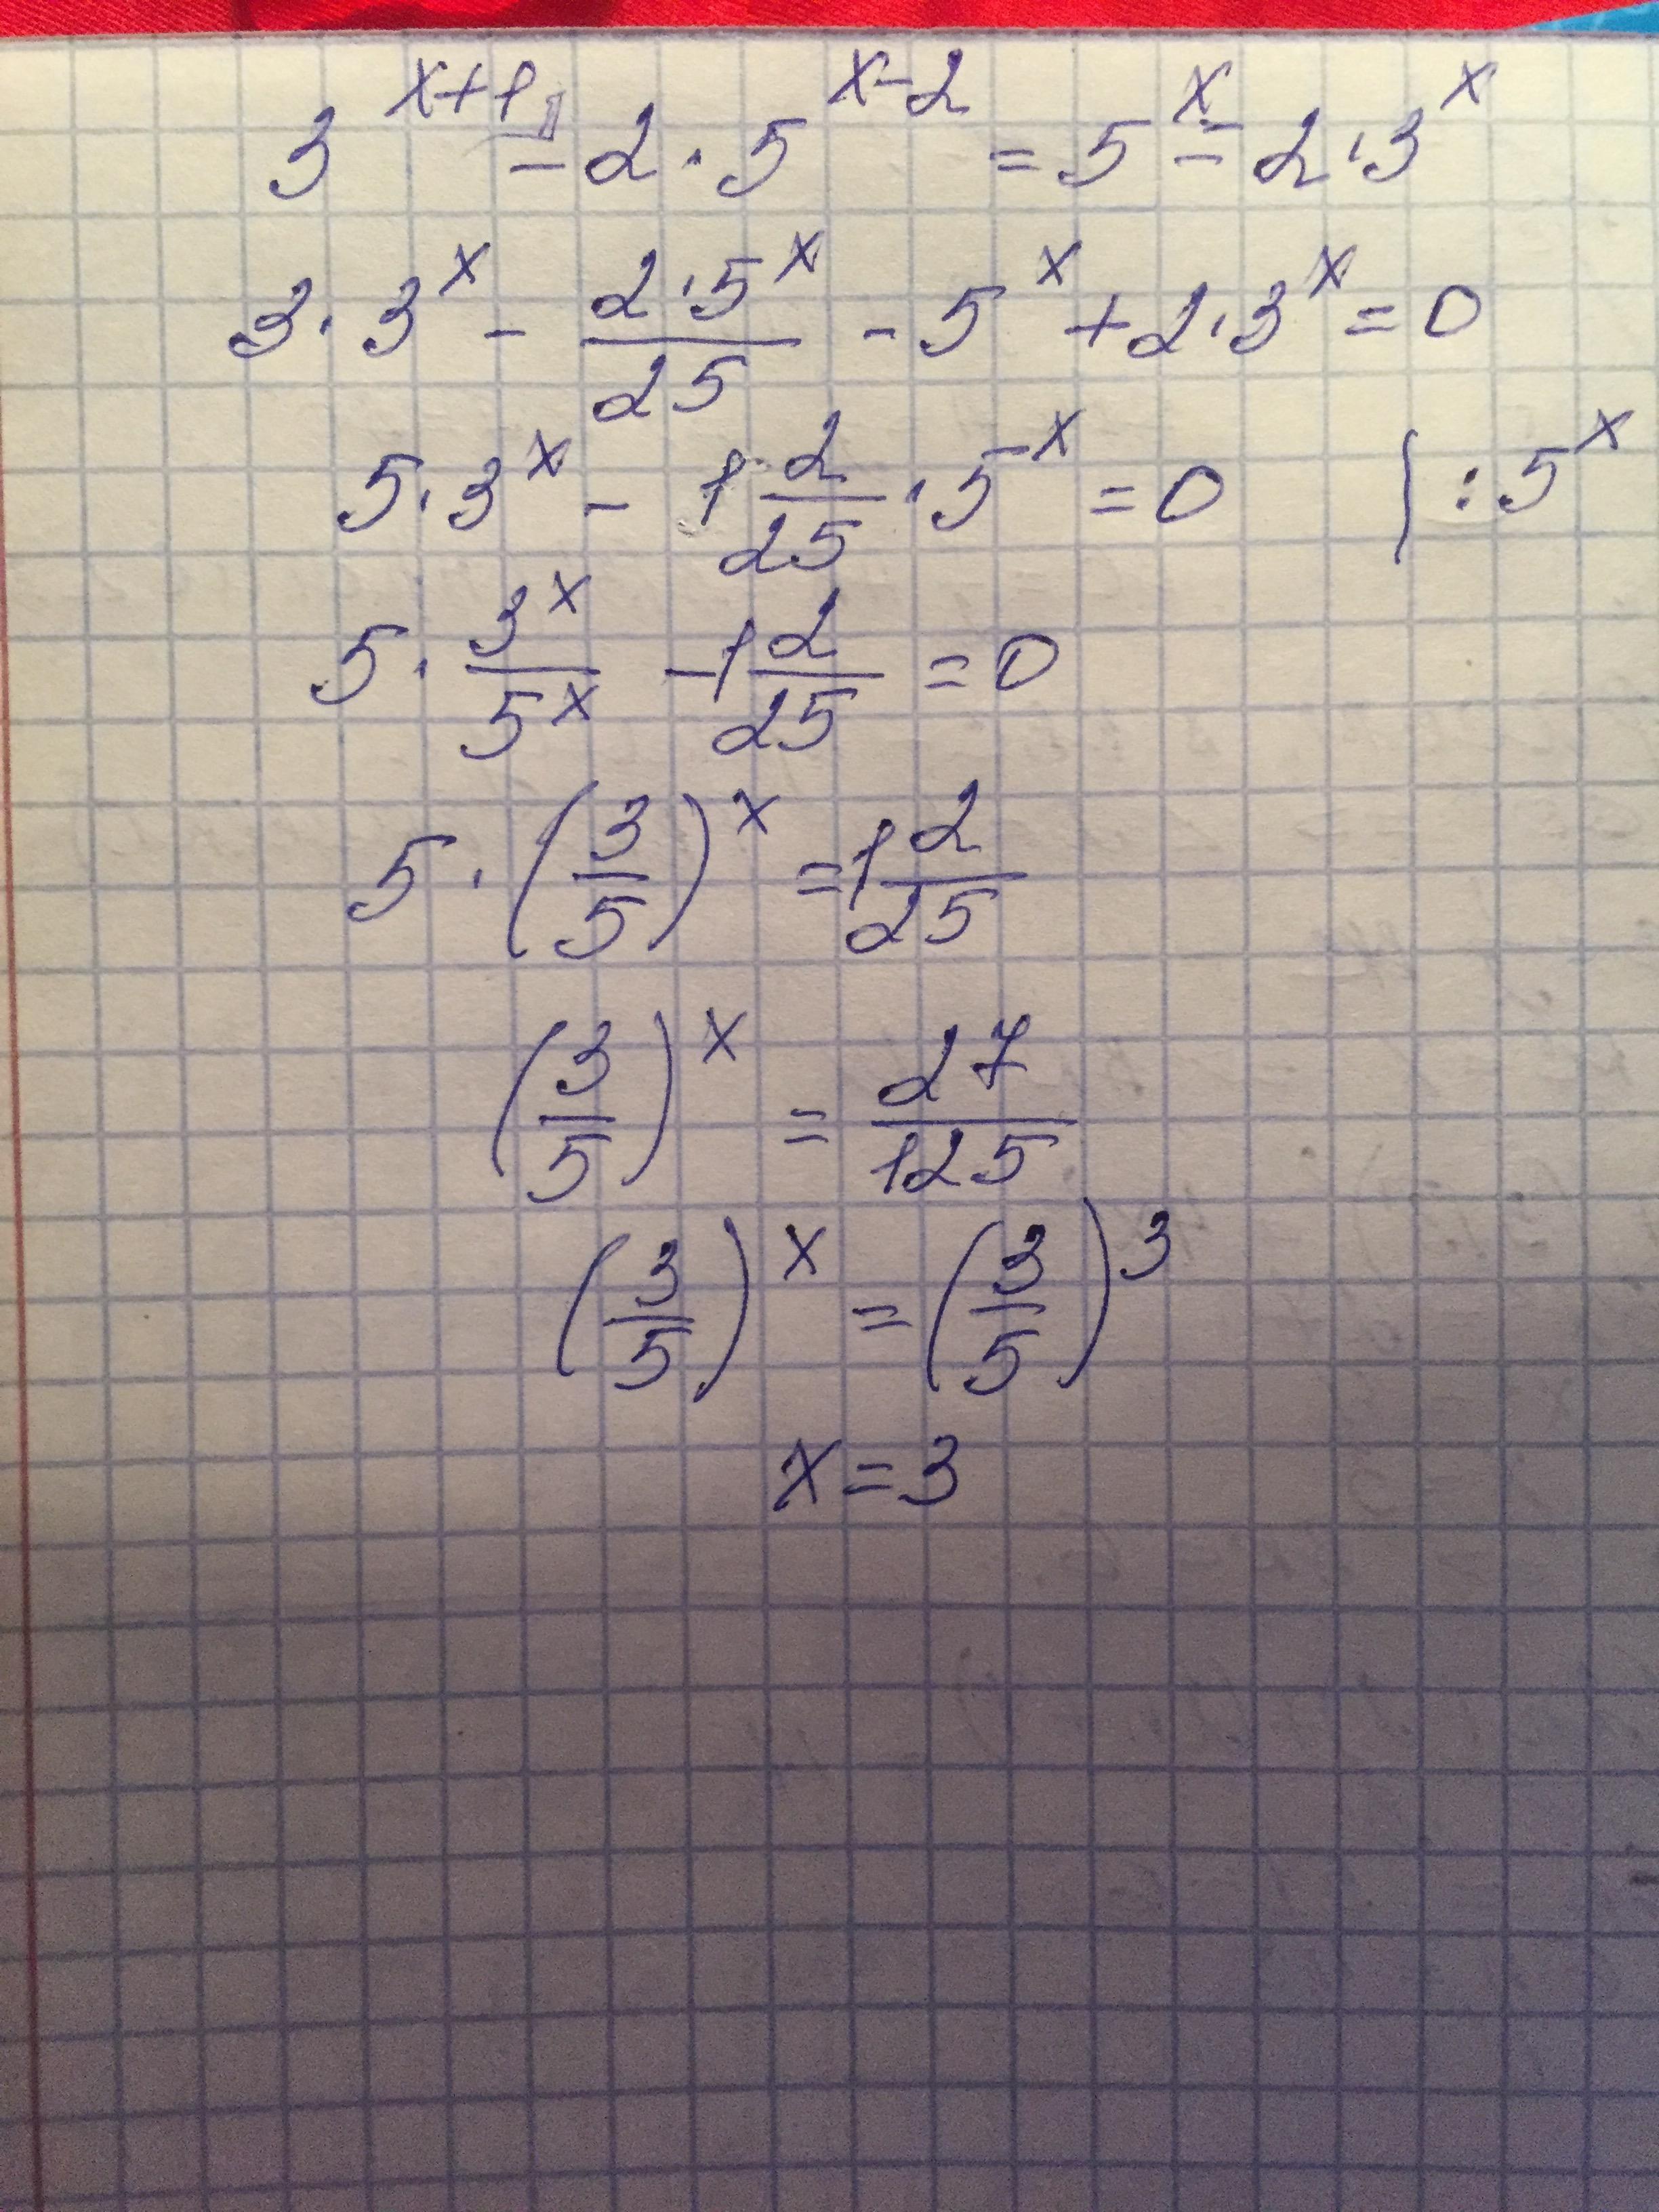 3^(x+1) - 2 · 5^(x-2) = 5^x - 2 · 3^x
3 · 3^x - (2 · 5^x)/25 - 5^x + 2 · 3^x = 0
5 · 3^x - 1 2/25 · 5^x = 0 | : 5^x
5 · 3^x/5^x - 1 2/25 = 0
5 · (3/5)^x = 1 2/25
(3/5)^x = 27/125
(3/5)^x = (3/5)^3
x = 3